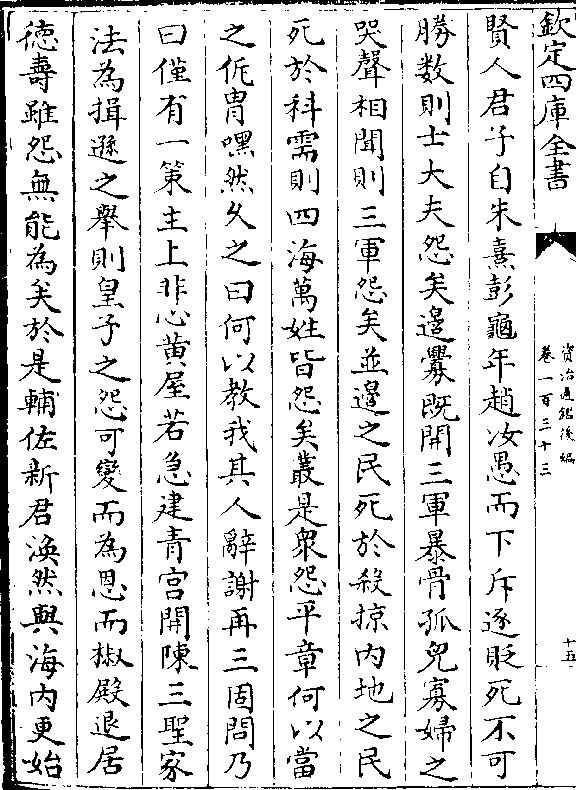 欽定四庫全書
資治通鑑後編
卷一百三十三
十五
賢人君子自朱熹彭龜年趙汝愚而下斥逐貶死不可
勝数則士大夫怨矣邉釁既開三軍暴骨孤兒寡婦之
哭聲相聞則三軍怨矣並邉之民死於殺掠内地之民
死於科需則四海萬姓皆怨矣叢是衆怨平章何以當
之侂胄嘿然久之曰何以教我其人辭謝再三固問乃
曰僅有一策主上非心黄屋若急建青宫開陳三聖家
法為揖遜之舉則皇子之怨可變而為恩而椒殿退居
徳壽雖怨無能為矣於是輔佐新君渙然與海内更始